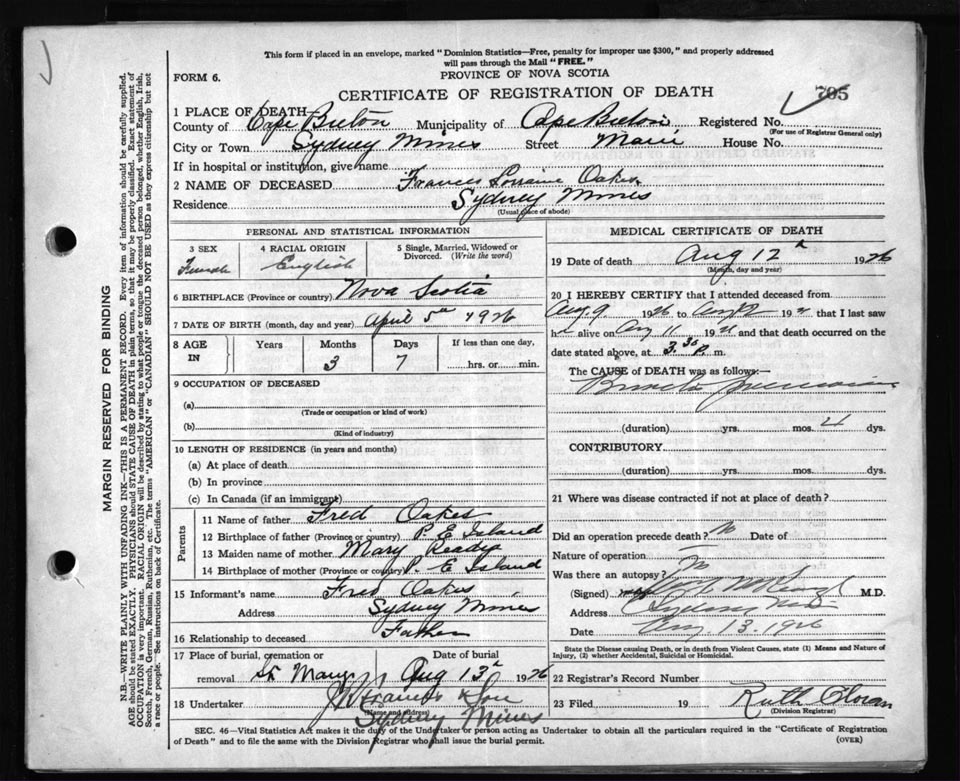 This form if placed in an envelope, marked "Dominion Statistics—Free, penalty for improper use $300," and properly addressed
will pass through the Mail "FREE."
FORM 6.
PROVINCE OF NOVA SCOTIA
CERTIFICATE OF REGISTRATION OF DEATH
705
1 PLACE OF DEATH
County of Cape Breton Municipality of Cape Breton Registered No.
(For use of Registrar General only)
City or Town Sydney Mines Street Main House No.
If in hospital or institution, give name
2 NAME OF DECEASED Frances Lorraine Oakes
Residence Sydney Mines
(Usual place of abode)
PERSONAL AND STATISTICAL INFORMATION
3 SEX Female
4 RACIAL ORIGIN English
5 Single, Married, Widowed or
Divorced. (Write the word)
6 BIRTHPLACE (Province or country) Nova Scotia
7 DATE OF BIRTH (month, day and year) April 5th 1926
8 AGE IN
Years Months Days If less than one day,
3 7 hrs. or min.
9 OCCUPATION OF DECEASED
(a)
(Trade or occupation or kind of work)
(b)
(Kind of industry)
10 LENGTH OF RESIDENCE (in years and months)
(a) At place of death
(b) In province
(c) In Canada (if an immigrant)
Parents
11 Name of father Fred Oakes
12 Birthplace of father (Province or country) P. E Island
13 Maiden name of mother Mary Ready
14 Birthplace of mother (Province or country) P. E Island
15 Informant's name Fred Oakes
Address Sydney Mines
16 Relationship to deceased Father
17 Place of burial, cremation or
removal St Marys
Date of burial
Aug 13th 1926
18 Undertaker J Francis & Son
(Name and Address)
Sydney Mines
MEDICAL CERTIFICATE OF DEATH
19 Date of death Aug 12th 1926
(Month, day and year)
20 I HEREBY CERTIFY that I attended deceased from
Aug 9 1926 to Aug 12 192 that I last saw
h alive on Aug 11 192 and that death occurred on
date stated above, at 3.30 P. m.
The CAUSE of DEATH was as follows:—
Broncho Pneumonia
(duration) yrs. mos. 4 dys.
CONTRIBUTORY
(duration) yrs. mos. dys.
21 Where was disease contracted if not at place of death?
Did an operation precede death? No Date of
Nature of operation
Was there an autopsy? No
(Signed) M.D.
Address
Date Aug. 13. 1926
State the Disease causing Death, or in death from Violent Causes, state (1) Means and Nature of
Injury, (2) whether Accidental, Suicidal or Homicidal.
22 Registrar's Record Number
23 Filed 19 Ruth
(Division Registrar)
SEC. 46—Vital Statistics Act makes it the duty of the Undertaker or person acting as Undertaker to obtain all the particulars required in the "Certificate of Registration
of Death" and to file the same with the Division Registrar who shall issue the burial permit.
(OVER)
MARGIN RESERVED FOR BINDING
N.B.—WRITE PLAINLY WITH UNFADING INK—THIS IS A PERMANENT RECORD. Every item of information should be carefully supplied.
AGE should be stated EXACTLY. PHYSICIANS should STATE CAUSE OF DEATH in plain terms, so that it may be properly classified. Exact statement of
OCCUPATION is very important. RACIAL ORIGIN will be described by stating to what people or tongue the deceased person belonged, whether English, Irish,
Scotch, French, German, Russian, Ruthenian, etc. The terms "AMERICAN" or "CANADIAN" SHOULD NOT BE USED as they express citizenship but not
a race or people. See instructions on back of Certificate.